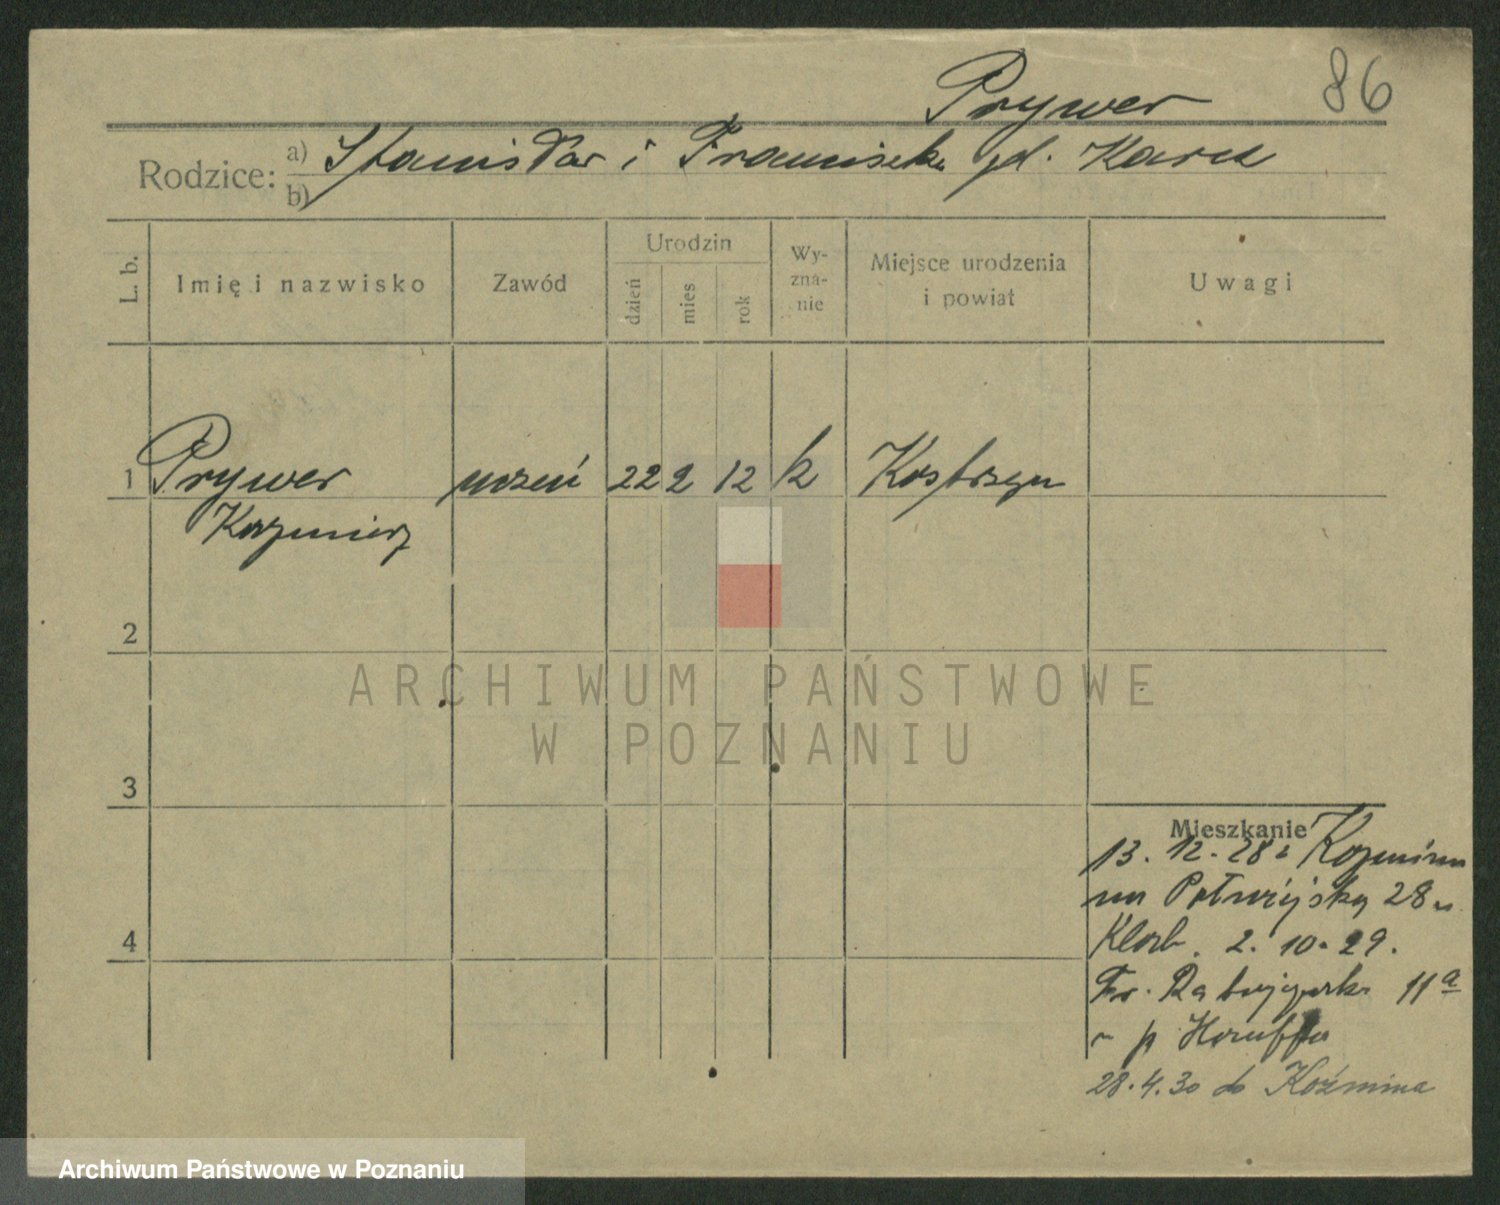 86
Prywer
Rodzice: a) Stanisław i Franciszka zd. Karcz
b)
L. b. Imię i nazwisko Zawód Urodzin dzień mies rok Wyznanie Miejsce urodzenia i powiat Uwagi
1 Prywer uczeń 22 2 12 k Kostrzyn
Kazmierz
2
ARCHIWUM PAŃSTWOWE
W POZNANIU
3
Mieszkanie
13. 12. 28 z Kozmina
28
2. 10. 29.
Fr. Ratajczaka 11a
p
28.4.30 do Koźmina
4
Archiwum Państwowe w Poznaniu